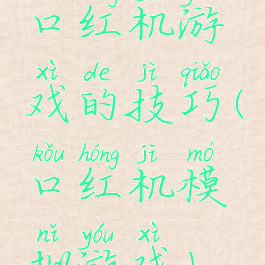 口红机游
xì de jì qiǎo
戏的技巧(
kǒu hóng jī mó
口红机模
nǐ yóu xì
拟游戏)